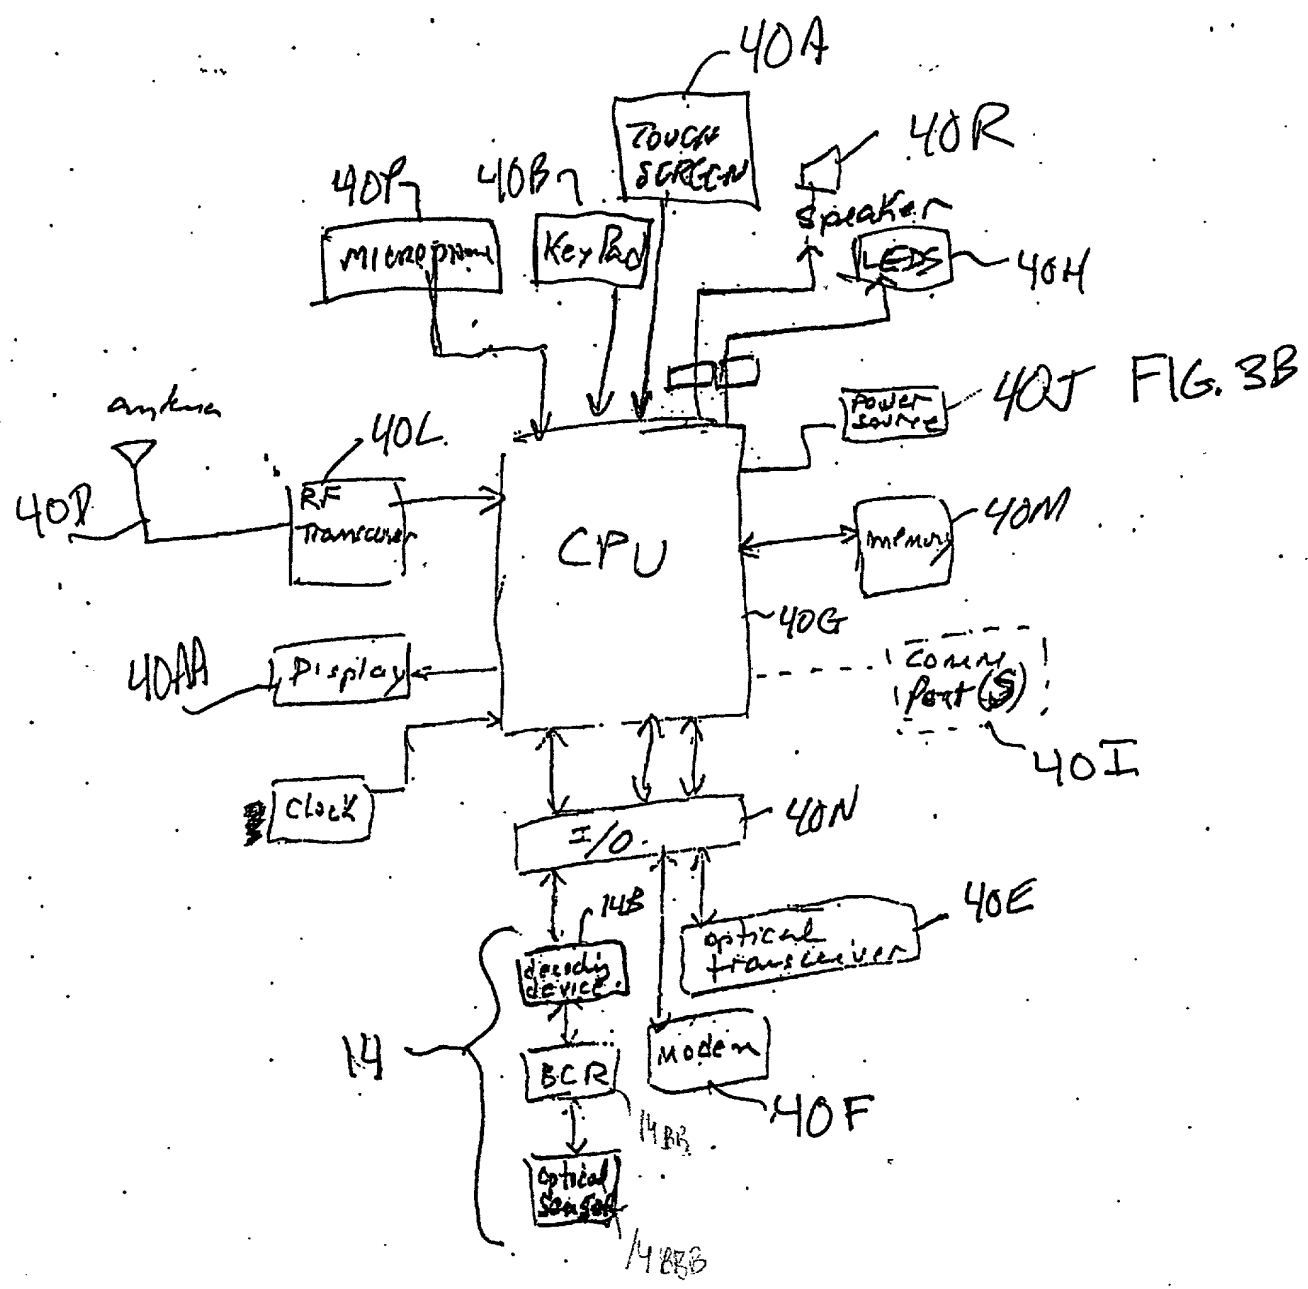 40A
40R
TOUCH
SCREEN
40P
40B
Speaker
Microphone
KeyPad
LEDS
40H
FIG. 3B
40J
Power
source
antenna
40L
40D
RF
Transceiver
CPU
memory
40M
40G
40AA
Display
Comm
Port(S)
40I
Clock
I/O
40N
14B
40E
decoding
device
optical
transceiver
14
BCR
Modem
40F
14BB
optical
sensor
14BBB